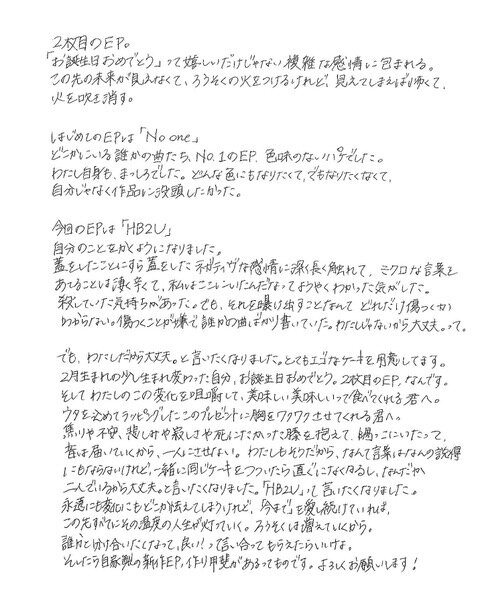 2枚目のEP。
「お誕生日おめでとう」って嬉しいだけじゃない複雑な感情に包まれる。
この先の未来が見えなくて、ろうそくの火をつけるけれど、見えてしまえば怖くて、
火を吹き消す。
はじめてのEPは「No one」
どこかにいる誰かの曲たち、No.1のEP、色味のないEPでした。
わたし自身も、まっしろでした。どんな色にもなりたくて、でもなりたくなくて、
自分じゃなく作品に没頭したかった。
今回のEPは「HB2U」
自分のことをかくようになりました。
蓋をしたことにすら蓋をしたネガティヴな感情に深く長く触れて、ミクロな言葉を
あてることは凄く辛くて、私はここにいたんだなってようやくわかった気がした。
殺していた気持ちがあった。でも、それを曝け出すことなんて どれだけ傷つくか
わからない。傷つくことが嫌で誰かの曲ばかり書いていた。わたしじゃないから大丈夫。って。
でも、わたしだから大丈夫。と言いたくなりました。とてもエゴなケーキを用意してます。
2月生まれの少し生まれ変わった自分、お誕生日おめでとう。2枚目のEP、なんです。
そしてわたしのこの変化を咀嚼して、美味しい美味しいって食べてくれる君へ。
ウタを込めてラッピングしたこのプレゼントに胸をワクワクさせてくれる君へ。
焦りや不安、悲しみや寂しさや死にたかった膝を抱えて、隅っこにいたって、
音は届いていくから、一人にさせない。わたしもそうだから、なんて言葉はなんの説得
にもならないけれど、一緒に同じケーキをつついたら直ぐになくなるし、なんだか
二人でいるから大丈夫。と言いたくなりました。「HB2U」って言いたくなりました。
永遠にも変化にもどこか怯えてしまうけれど、今までを愛し続けていれば、
この先すべてにその温度の人生が灯っていく。ろうそくは増えていくから。
誰かと分け合いたくなって、良い！って言い合ってもらえたらいいな。
そしたら自家製の新作EP、作り甲斐があるってものです。よろしくお願いします！